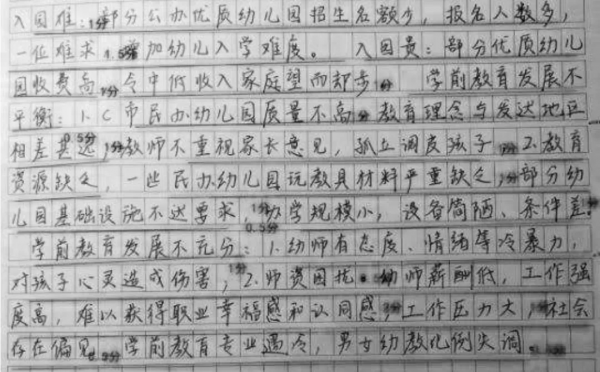 入园难:1分部分公办优质幼儿园招生名额少,报名人数多,
一位难求1.5分增加幼儿入学难度。 入园贵:部分优质幼儿
园收费高1分令中低收入家庭望而却步1分 学前教育发展不
平衡:1.C市民办幼儿园质量不高 教育理念与发达地区
相差甚远0.5分1分教师不重视家长意见,孤立调皮孩子 2.教育
资源缺乏,一些民办幼儿园玩教具材料严重缺乏,部分幼
儿园基础设施不达要求,1分办学规模小,设备简陋、条件差
学前教育发展不充分:0.5分1.幼师有态度、情绪等冷暴力,
对孩子心灵造成伤害,1分2.师资困扰 幼师薪酬低,工作强
度高,难以获得职业幸福感和认同感,工作压力大,社会
存在偏见0.5分 学前教育专业遇冷,男女幼教比例失调